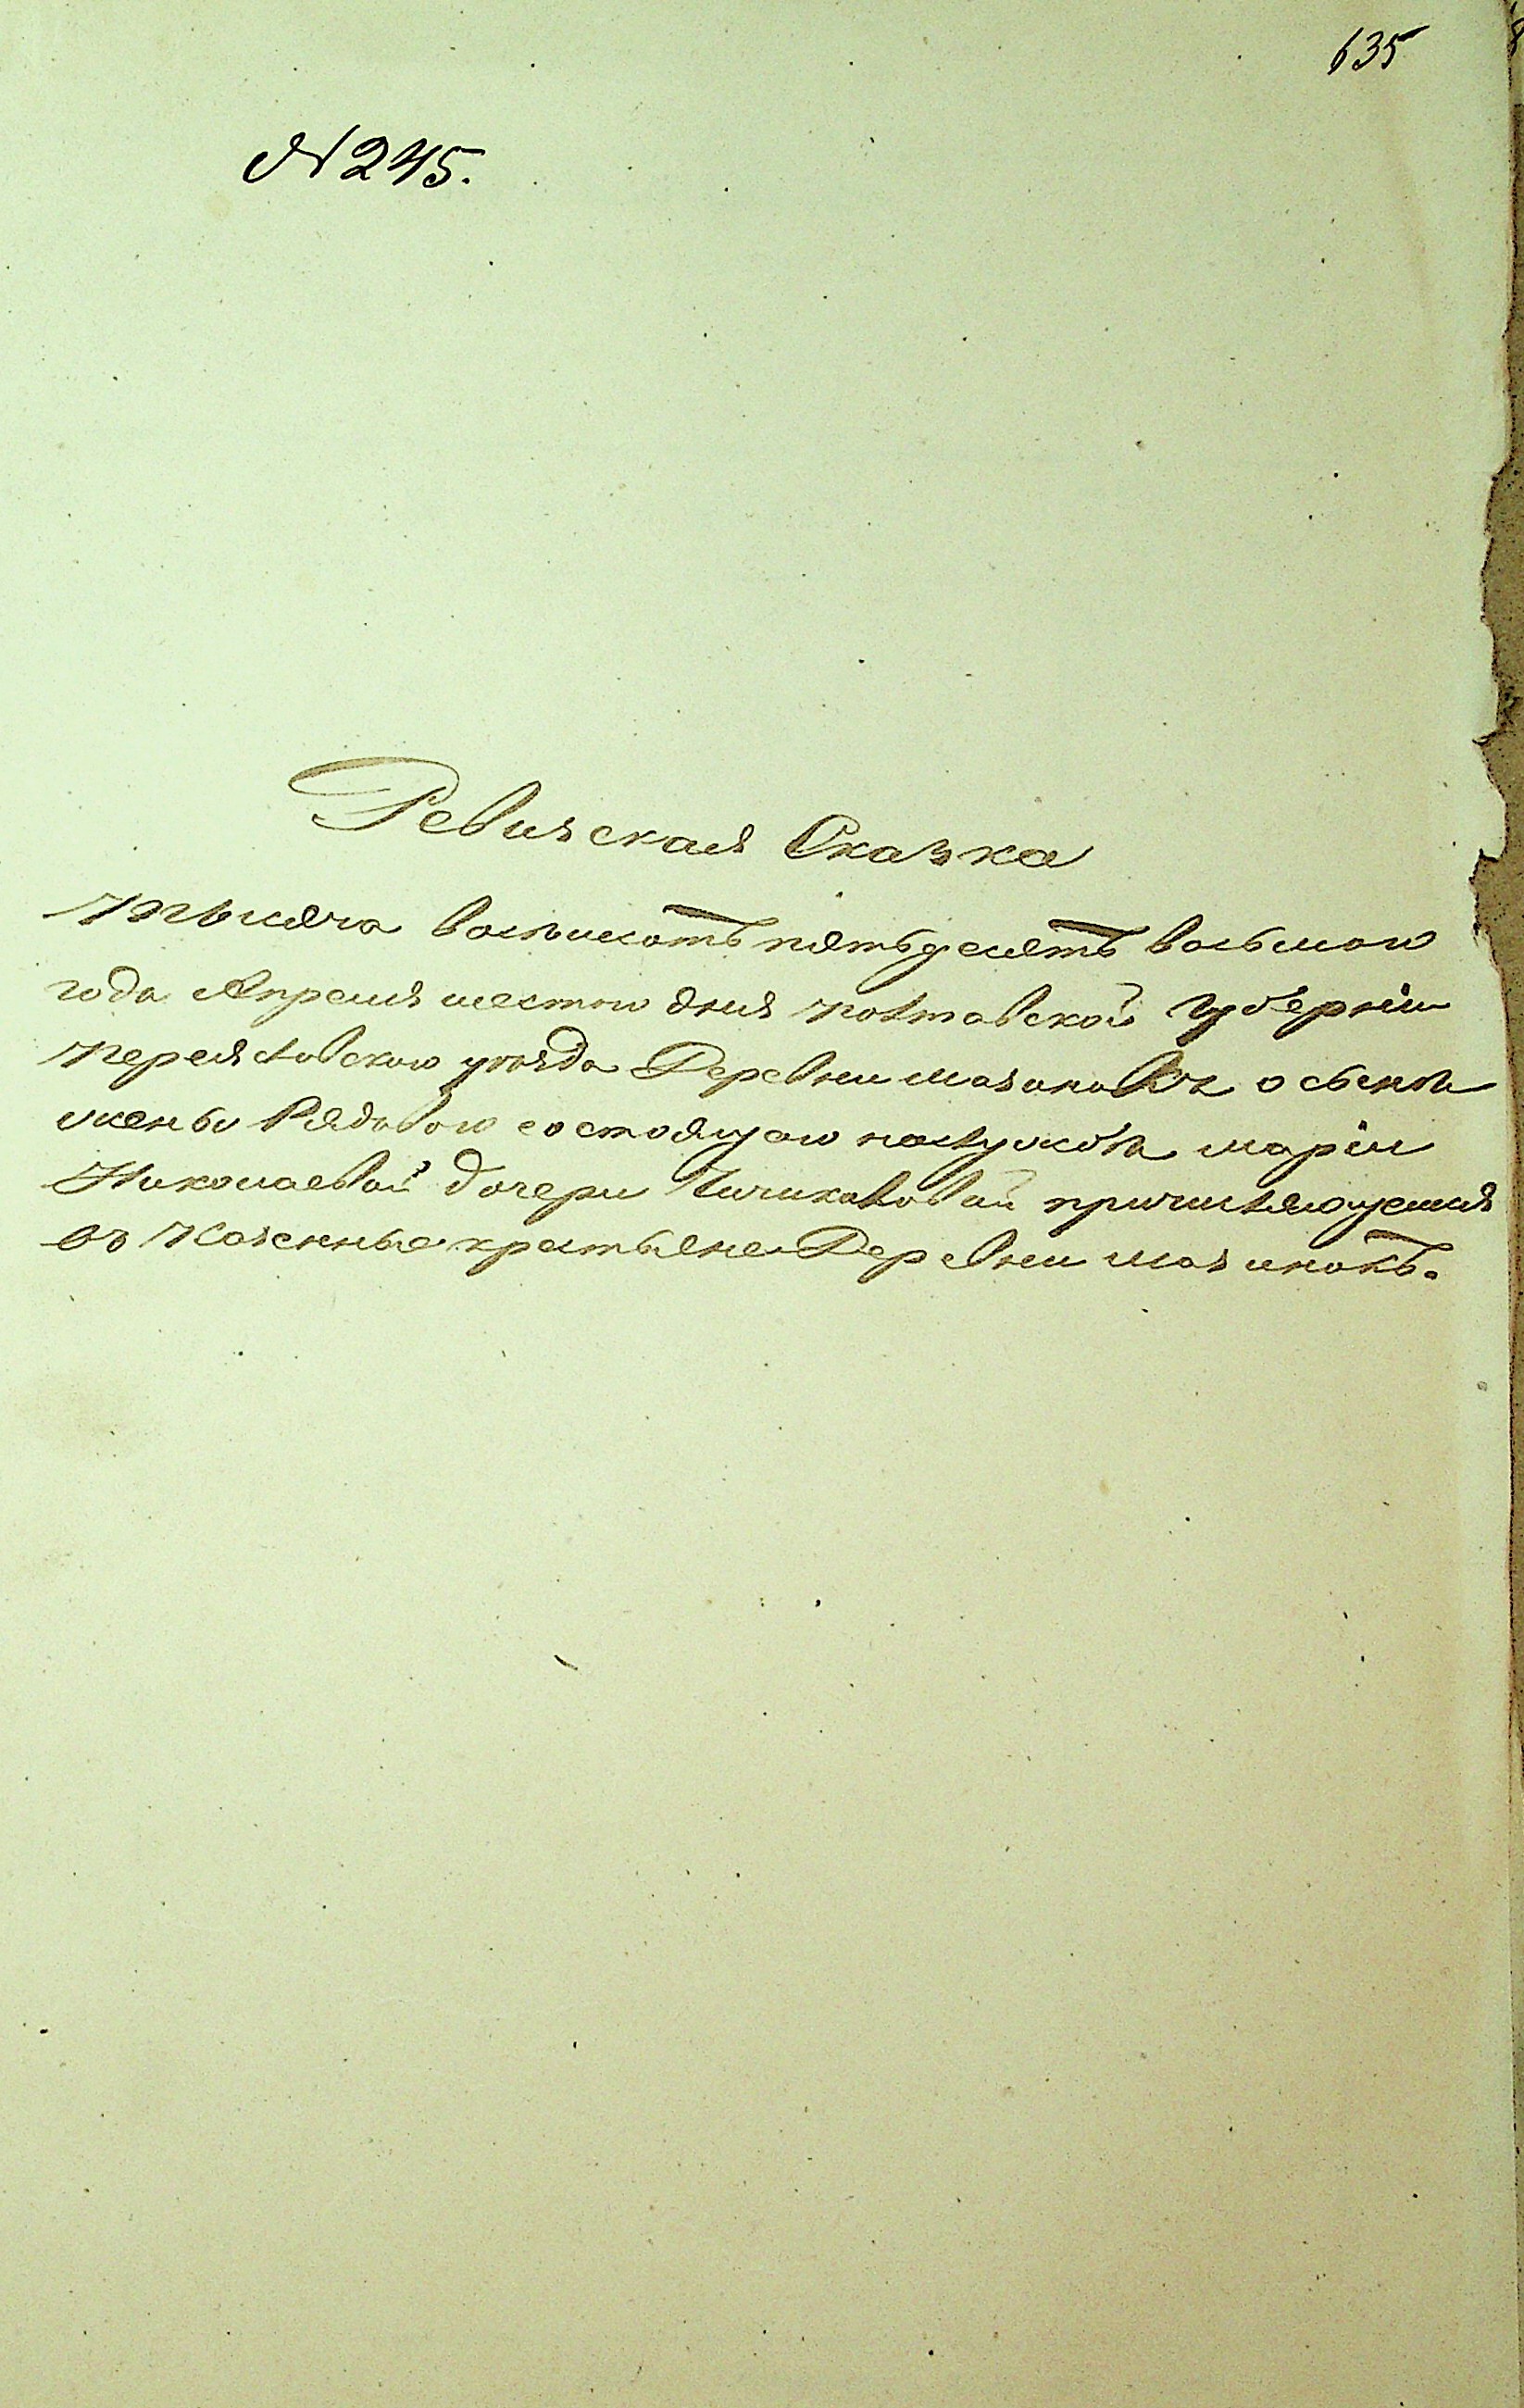 635
N 245.
Ревизская Сказка
тысяча восемьсотъ пятьдесятъ восьмого
года Апреля шестого дня полтавской губерніи
переяславского уезда Деревни о сыне
жены Рядового состоящего на службе маріи
Николаевой дочери причисляющейся
въ Казенные крестьяне Деревни